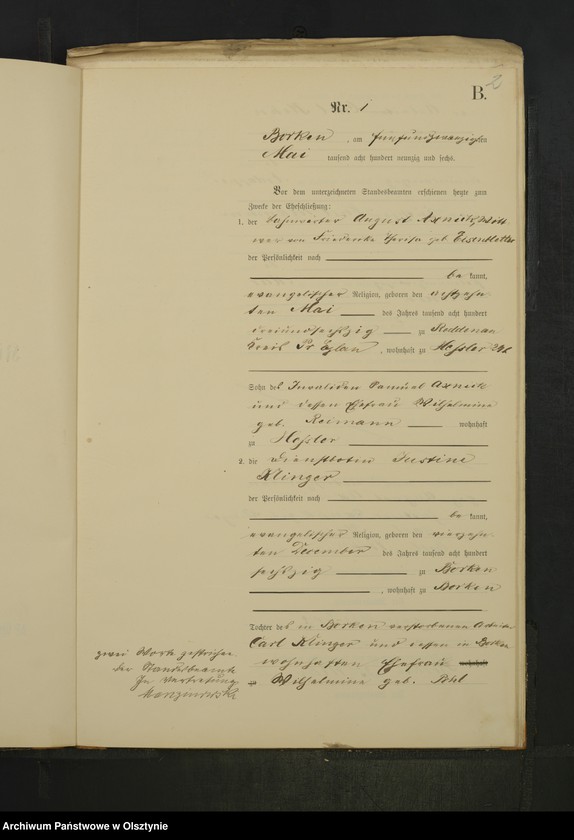 2
B.
Nr. 1
Borken, am fünfundzwanzigsten
Mai tausend acht hundert neunzig und sechs.
Vor dem unterzeichneten Standesbeamten erschienen heute zum
Zwecke der Eheschließung:
1. der Bahnwärter August Axnick, Witt
wer von Friederike geb. Eisenblätter
der Persönlichkeit nach
be kannt,
evangelischer Religion, geboren den
ten Mai des Jahres tausend acht hundert
dreiundsechzig zu Reddenau
Kreis Pr Eylau, wohnhaft zu Hessler
Sohn des Invaliden Samuel Axnick
und dessen Ehefrau Wilhelmine
geb. Reimann wohnhaft
zu Hessler
2. die Dienstbotin Justine
Klinger
der Persönlichkeit nach
be kannt,
evangelischer Religion, geboren den vierzehn
ten December des Jahres tausend acht hundert
sechszig zu Borken
, wohnhaft zu Borken
Tochter des in Borken verstorbenen
Carl Klinger und dessen in Borken
wohnhaften Ehefrau wohnhaft
zu Wilhelmine geb. Pohl
zwei Worte gestrichen
der Standesbeamte
In Vertretung
Archiwum Państwowe w Olsztynie